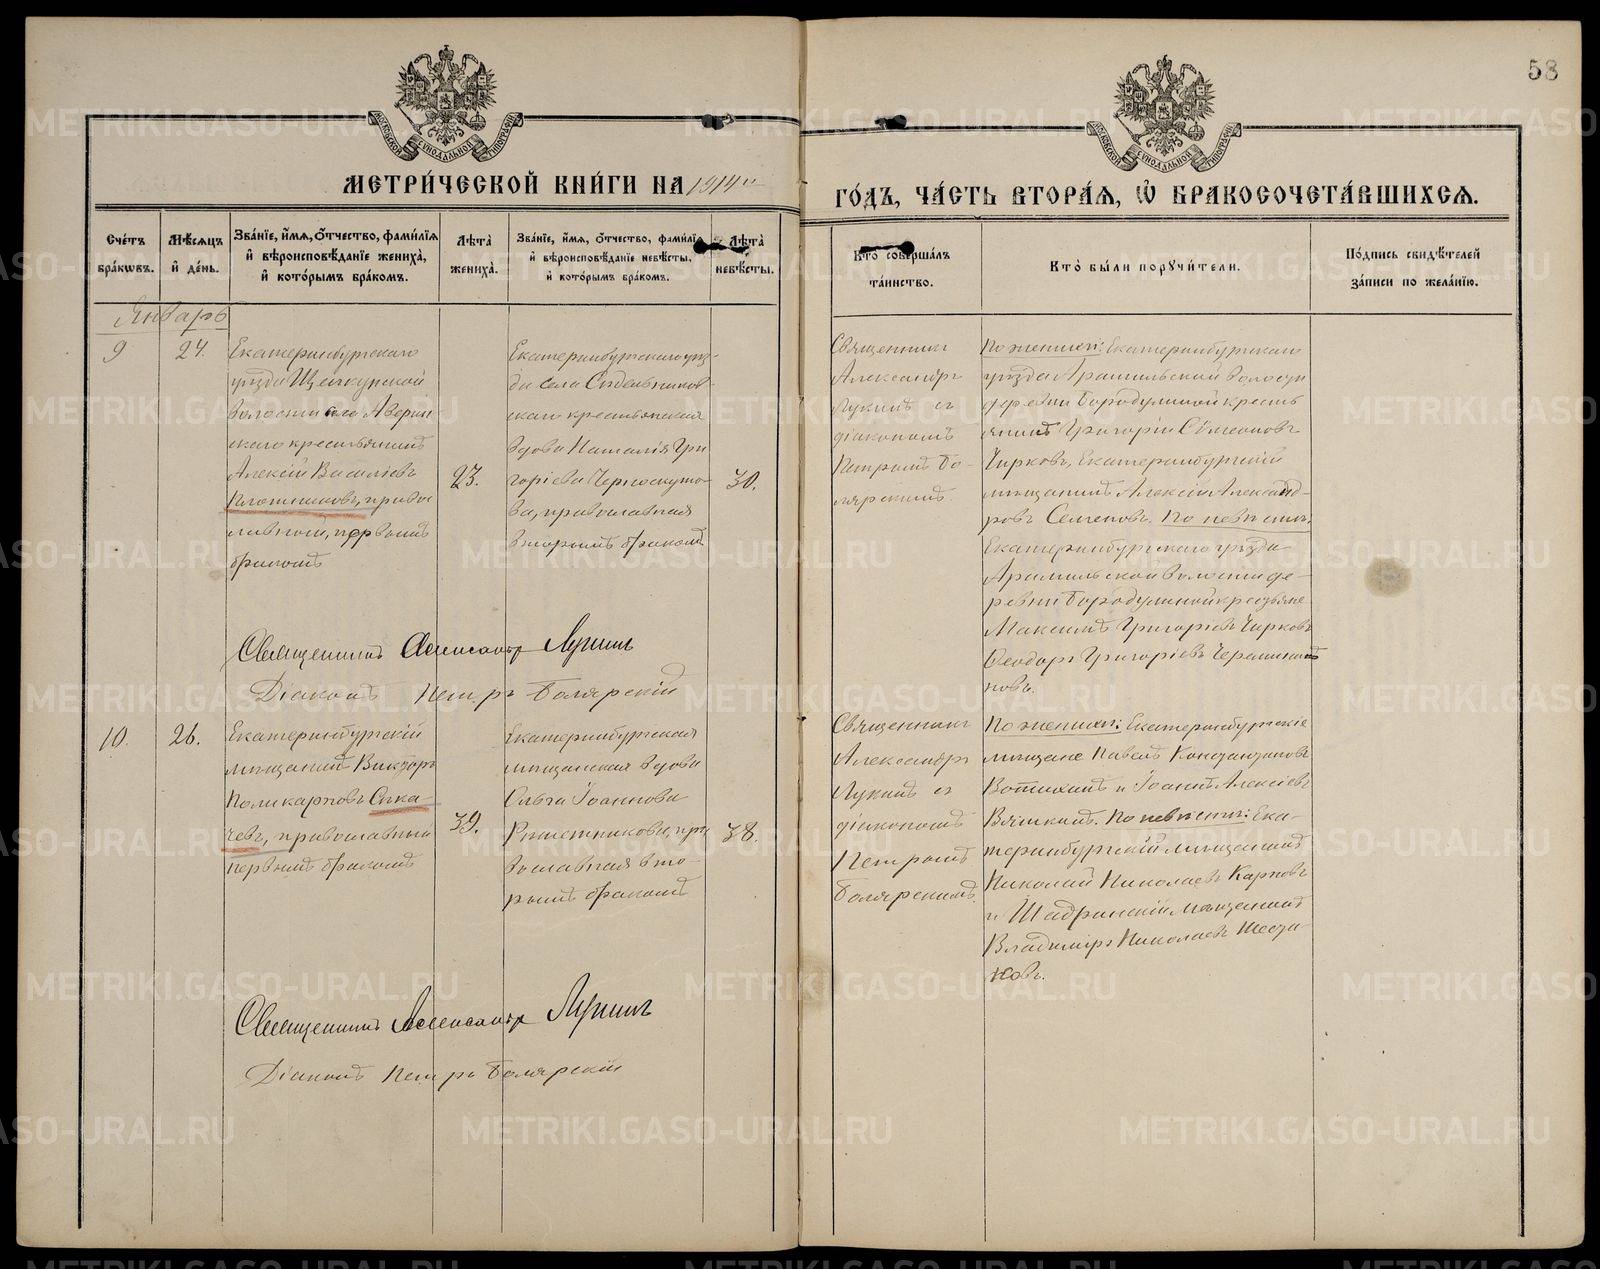 58
МОСКОВСКОЙ СѴНОДАЛЬНОЙ ТИПОГРАФІИ
МОСКОВСКОЙ СѴНОДАЛЬНОЙ ТИПОГРАФІИ
МЕТРИ́ЧЕСКОЙ КНИ́ГИ НА 1914 й
ГО́ДЪ, ЧА́СТЬ ВТОРА́Я, Ѽ БРАКОСОЧЕТА́ВШИХСЯ.
Сче́тъ бра́кѡвъ.
Мѣ́сяцъ й де́нь.
Зва́нїе, и́мя, ѻ́тчество, фами́лїя й вѣроисповѣ́данїе жениха̀, й кото́рымъ бра́комъ.
Лѣ́та жениха̀.
Зва́нїе, и́мя, ѻ́тчество, фами́лїя й вѣроисповѣ́данїе невѣ́сты, й кото́рымъ бра́комъ.
Лѣ́та невѣ́сты.
Кто̀ соверша́лъ та́инство.
Кто̀ бы́ли порꙋчи́тели.
По́дпись свидѣ́телей за́писи по жела́нїю.
Январь
9
24.
Екатеринбургскаго
уѣзда Щелкунской
волости села Аверин
скаго крестьянинъ
Алексій Василіевъ
Плотниковъ, право
славный, первымъ
бракомъ
23.
Екатеринбургскаго уѣз-
да села Сидельников-
скаго крестьянская
вдова Наталія Гри
горіева Черноскуто-
ва, православная
вторымъ бракомъ
30.
Священникъ
Александръ
Лукинъ съ
діакономъ
Петромъ Бо-
лярскимъ.
По женихѣ: Екатеринбургскаго
уѣзда Арамильской волости
деревни Бородулиной кресть
янинъ Григорій Симеоновъ
Чирковъ, Екатеринбургскій
мѣщанинъ Алексій Александ-
ровъ Семеновъ. По невѣстѣ:
Екатеринбургскаго уѣзда
Арамильской волости де-
ревни Бородулиной крестьяне
Максимъ Григорьевъ Чирковъ
Ѳеодоръ Григоріевъ
ковъ.
Священникъ Александръ Лукинъ
Діаконъ Петръ Болярскій
10.
26.
Екатеринбургскій
мѣщанинъ Викторъ
Поликарповъ Сика-
чевъ, православный
первымъ бракомъ
39.
Екатеринбургская
мѣщанская вдова
Ольга Іоаннова
Рѣшетникова, пра
вославная вто-
рымъ бракомъ
38.
Священникъ
Александръ
Лукинъ съ
діакономъ
Петромъ
Болярскимъ.
По женихѣ: Екатеринбургскіе
мѣщане Павелъ Константиновъ
Вотинхинъ и Іоаннъ Алексіевъ
Вяткинъ. По невѣстѣ: Ека-
теринбургскій мѣщанинъ
Николай Николаевъ Карповъ
и Шадринскій мѣщанинъ
Владиміръ Николаевъ Шеста-
ковъ.
Священникъ Александръ Лукинъ
Діаконъ Петръ Болярскій
METRIKI.GASO-URAL.RU